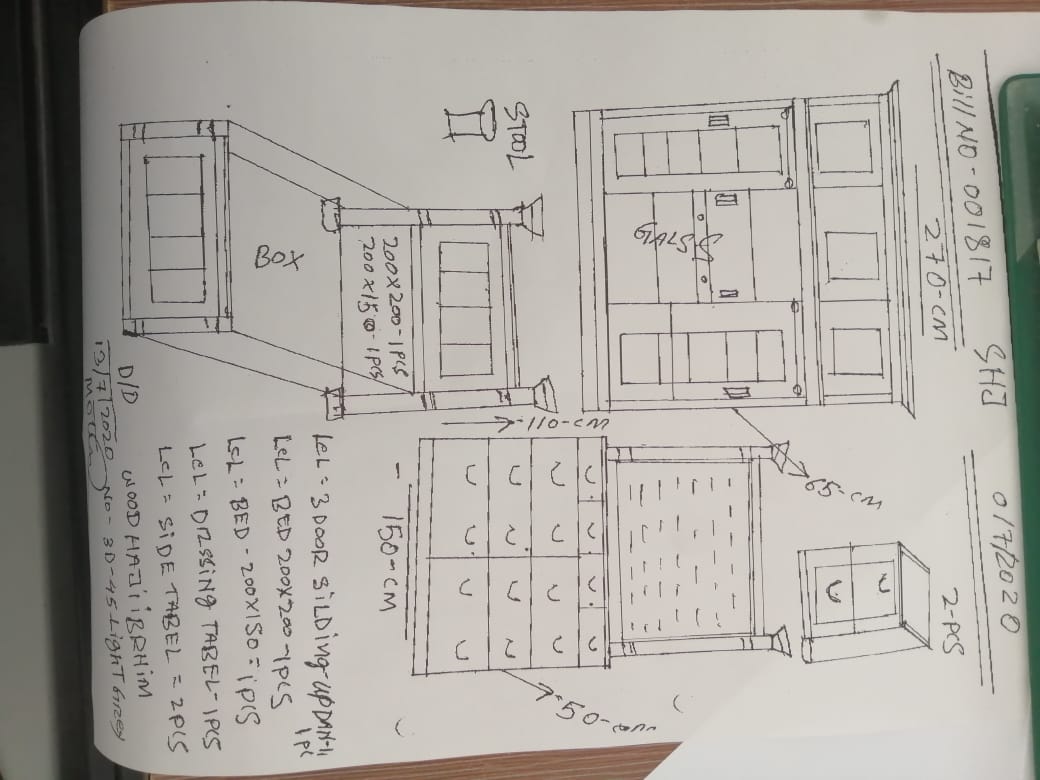 Bill NO-001817
SHJ
0/7/2020
270-CM
2-PCS
65-cm
GALSS
110-CM
50-cm
STOOL
200X200-1PCS
200X150-1PCS
150-CM
BOX
LCL = 3 DOOR SiLDing-UPDAN-
1PC
LCL = BED 200X200-1PCS
LCL = BED - 200X150 = 1PCS
LCL = DRSSING TABEL-1PCS
LCL = SIDE TABEL = 2PCS
WOOD HAJI iBRHiM
NO- 3D-45-LighT Grey
D/D
13/7/2020